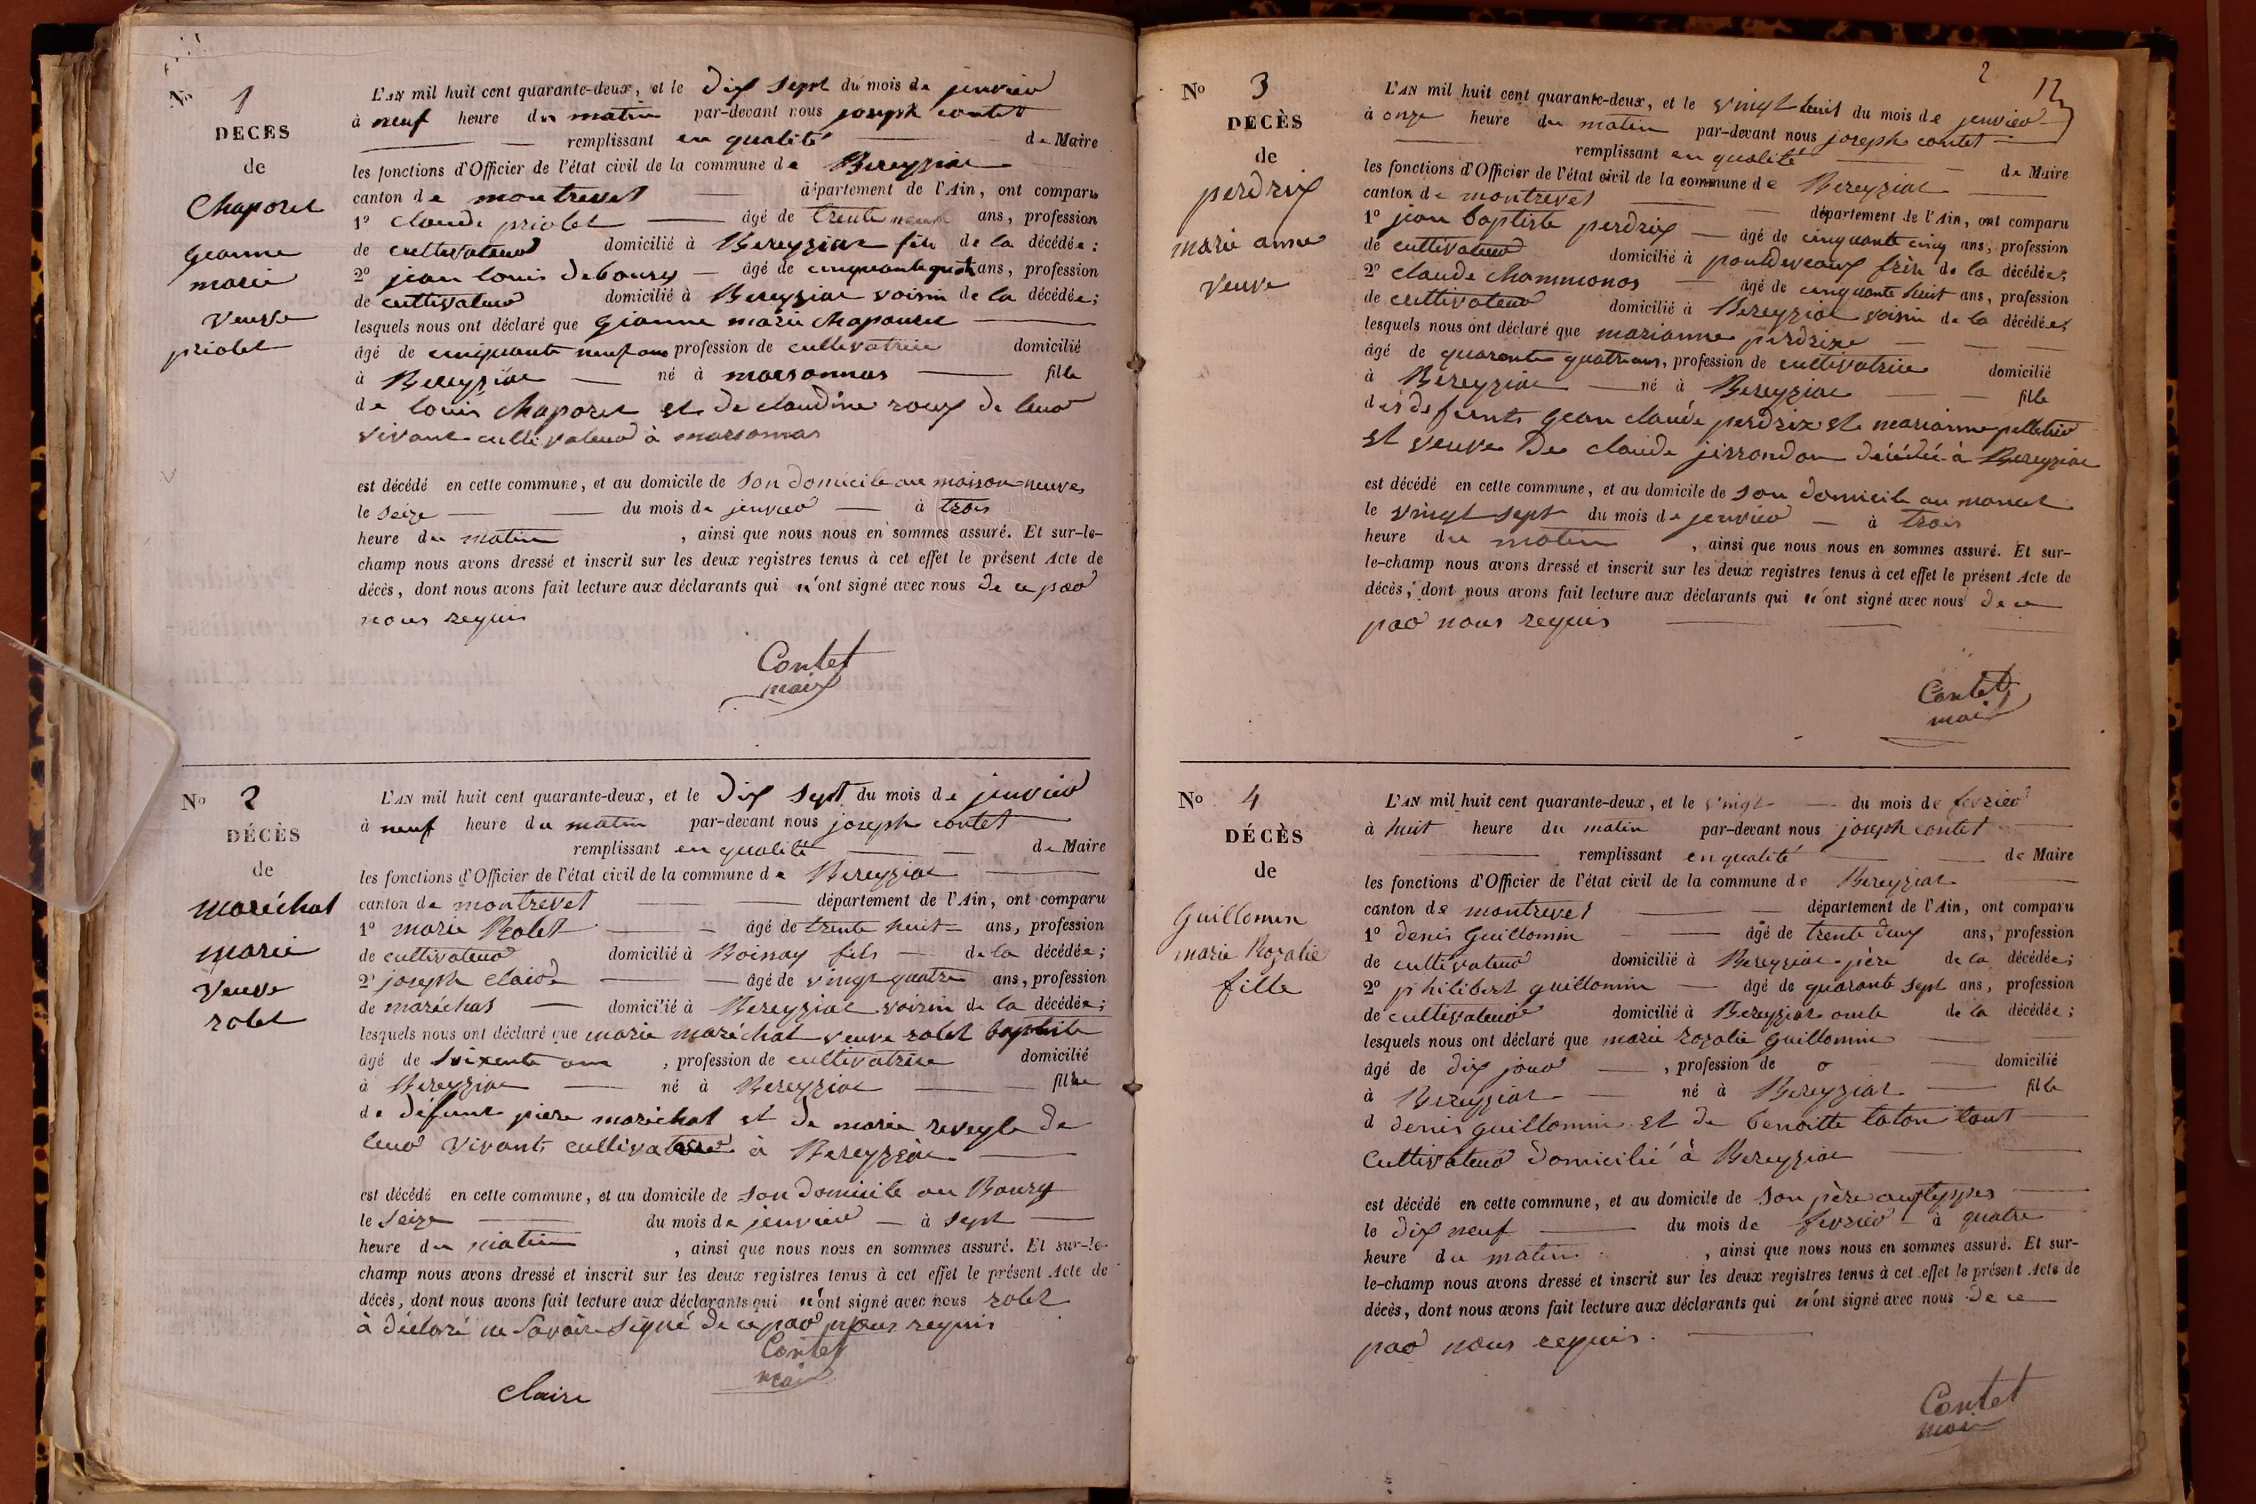 No 1
DECES
de
Chaporet
jeanne
marie
veuve
priolet
L'AN mil huit cent quarante-deux, et le dix sept du mois de jenvier
à neuf heure du matin par-devant nous joseph contet
remplissant en qualité de Maire
les fonctions d'Officier de l'état civil de la commune de Bereyziat
canton de montrevet département de l'Ain, ont comparu
1o claude priolet âgé de trente neuf ans, profession
de cultivateur domicilié à Bereyziat fils de la décédée;
2o jean louis debourg âgé de cinquante quatre ans, profession
de cultivateur domicilié à Bereyziat voisin de la décédée;
lesquels nous ont déclaré que jeanne marie chapouret
âgé de cinquante neuf ans profession de cultivatrice domicilié
à Bereyziat né à marsonnas fille
de louis chaporet et de claudine roux de leur
vivant cultivateur à marsonnas
est décédé en cette commune, et au domicile de son domicile au maison neuves
le seize du mois de jenvier à trois
heure du matin, ainsi que nous nous en sommes assuré. Et sur-le-
champ nous avons dressé et inscrit sur les deux registres tenus à cet effet le présent Acte de
décès, dont nous avons fait lecture aux déclarants qui n'ont signé avec nous de ce par
nous requis
Contet
maire
No 2
DÉCÈS
de
maréchal
marie
veuve
rolet
L'AN mil huit cent quarante-deux, et le dix sept du mois de jenvier
à neuf heure du matin par-devant nous joseph contet
remplissant en qualité de Maire
les fonctions d'Officier de l'état civil de la commune de Bereyziat
canton de montrevet département de l'Ain, ont comparu
1o marie Rolet âgé de trente huit ans, profession
de cultivateur domicilié à Boissay fils de la décédée;
2o joseph claire âgé de vingt quatre ans, profession
de maréchal domicilié à Bereyziat voisin de la décédée;
lesquels nous ont déclaré que marie maréchal veuve rolet baptiste
âgé de soixente ans, profession de cultivatrice domicilié
à Bereyziat né à Bereyziat fille
de défunt piere maréchal et de marie reveyle de
leur vivants cultivateur à Bereyziat
est décédé en cette commune, et au domicile de son domicile au Bourg
le seize du mois de jenvier à sept
heure du matin, ainsi que nous nous en sommes assuré. Et sur-le-
champ nous avons dressé et inscrit sur les deux registres tenus à cet effet le présent Acte de
décès, dont nous avons fait lecture aux déclarants qui n'ont signé avec nous rolet
à déclaré ne savoir signé de ce par nous requis
Contet
maire
claire
2 12
No 3
DECÈS
de
perdrix
marie anne
veuve
L'AN mil huit cent quarante-deux, et le vingt huit du mois de jenvier
à onze heure du matin par-devant nous joseph contet
remplissant en qualité de Maire
les fonctions d'Officier de l'état civil de la commune de Bereyziat
canton de montrevet département de l'Ain, ont comparu
1o jean baptiste perdrix âgé de cinquante cinq ans, profession
de cultivateur domicilié à pontdeveaux frère de la décédée;
2o claude chammonos âgé de cinquante huit ans, profession
de cultivateur domicilié à Bereyziat voisin de la décédée;
lesquels nous ont déclaré que marianne perdrixe
âgé de quarante quatre ans, profession de cultivatrice domicilié
à Bereyziat né à Bereyziat fille
des defunts jean claude perdrix et marianne pelletier
et veuve de claude jirrondon décédé à Bereyziat
est décédé en cette commune, et au domicile de son domicile au
le vingt sept du mois de jenvier à trois
heure du matin, ainsi que nous nous en sommes assuré. Et sur-
le-champ nous avons dressé et inscrit sur les deux registres tenus à cet effet le présent Acte de
décès, dont nous avons fait lecture aux déclarants qui n'ont signé avec nous de ce
par nous requis
Contet
maire
No 4
DÉCÈS
de
Guillomin
marie Rozalie
fille
L'AN mil huit cent quarante-deux, et le vingt du mois de fevrier
à huit heure du matin par-devant nous joseph contet
remplissant en qualité de Maire
les fonctions d'Officier de l'état civil de la commune de Bereyziat
canton de montrevet département de l'Ain, ont comparu
1o denis Guillomin âgé de trente deux ans, profession
de cultivateur domicilié à Bereyziat père de la décédée;
2o philibert guillomin âgé de quarante sept ans, profession
de cultivateur domicilié à Bereyziat oncle de la décédée;
lesquels nous ont déclaré que marie rozalie Guillomin
âgé de dix jour, profession de o domicilié
à Bereyziat né à Bereyziat fille
d denis guillomin et de benoitte taton tout
cultivateur domicilié à Bereyziat
est décédé en cette commune, et au domicile de son père aux teppes
le dix neuf du mois de fevrier à quatre
heure du matin, ainsi que nous nous en sommes assuré. Et sur-
le-champ nous avons dressé et inscrit sur les deux registres tenus à cet effet le présent Acte de
décès, dont nous avons fait lecture aux déclarants qui n'ont signé avec nous de ce
par nous requis.
Contet
maire